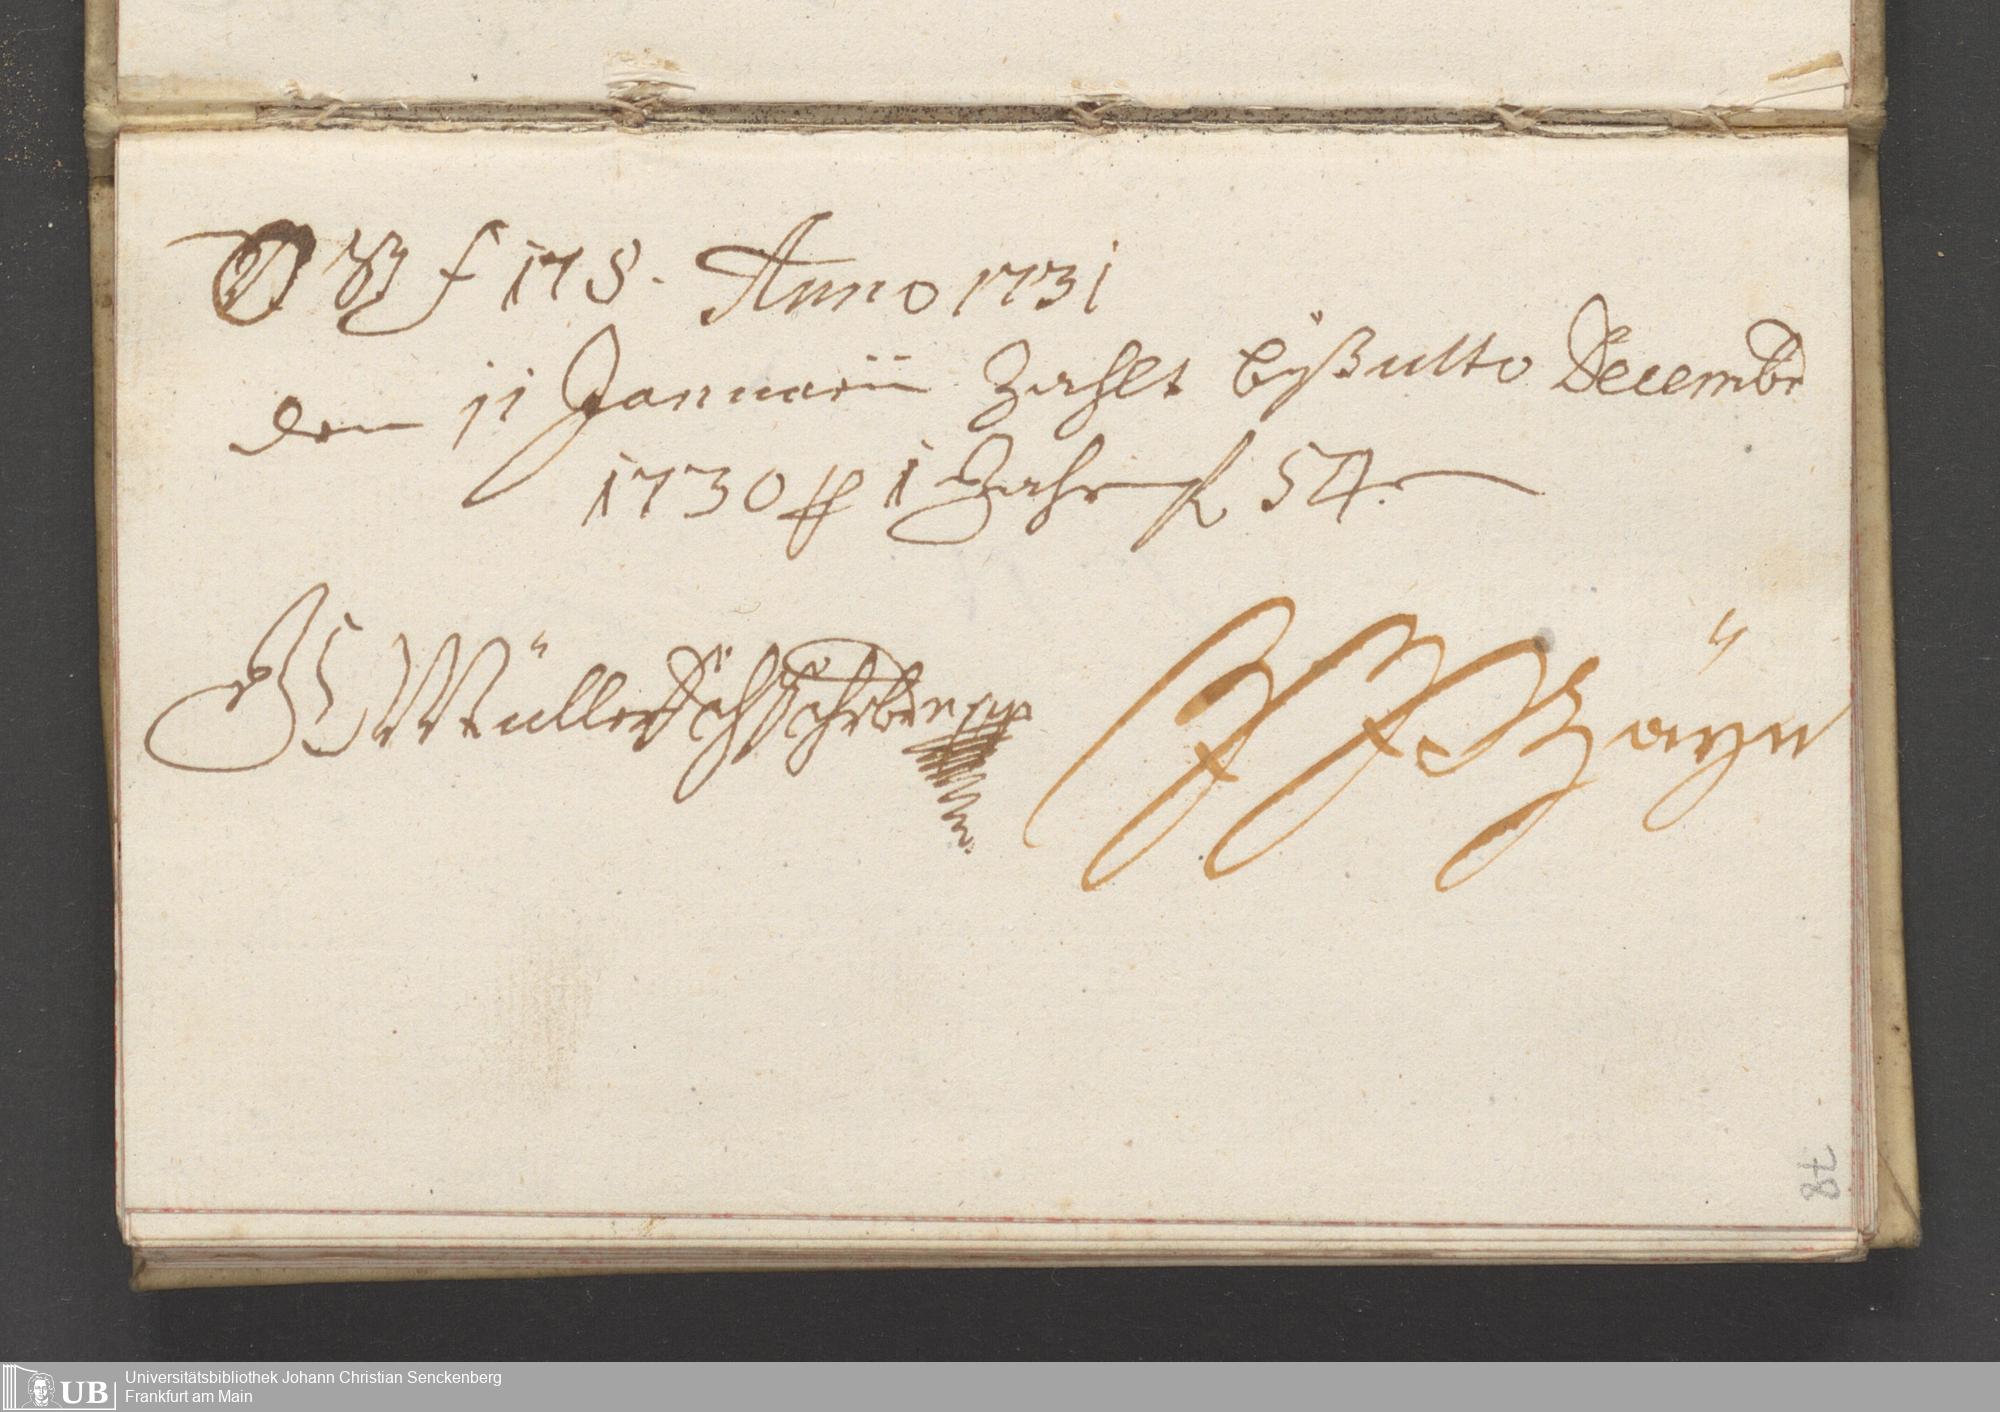 OB f 178. Anno 1731
den 11 Januarii Zahlt biß ulto Decembr
1730 p 1 Jahr fl 54.
Müller
78
UB
Universitätsbibliothek Johann Christian Senckenberg
Frankfurt am Main